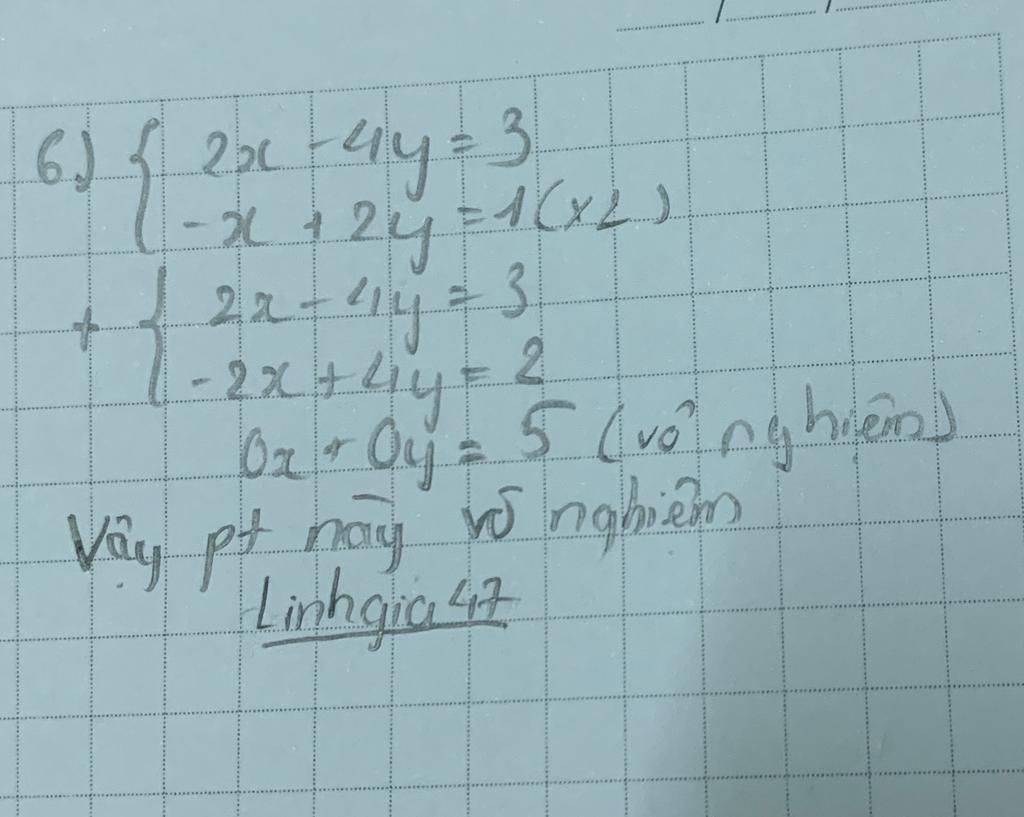 6) { 2x - 4y = 3
-x + 2y = 1 (x2)
+ { 2x - 4y = 3
-2x + 4y = 2
0x + 0y = 5 (vô nghiệm)
Vậy pt này vô nghiệm
Linhgia47